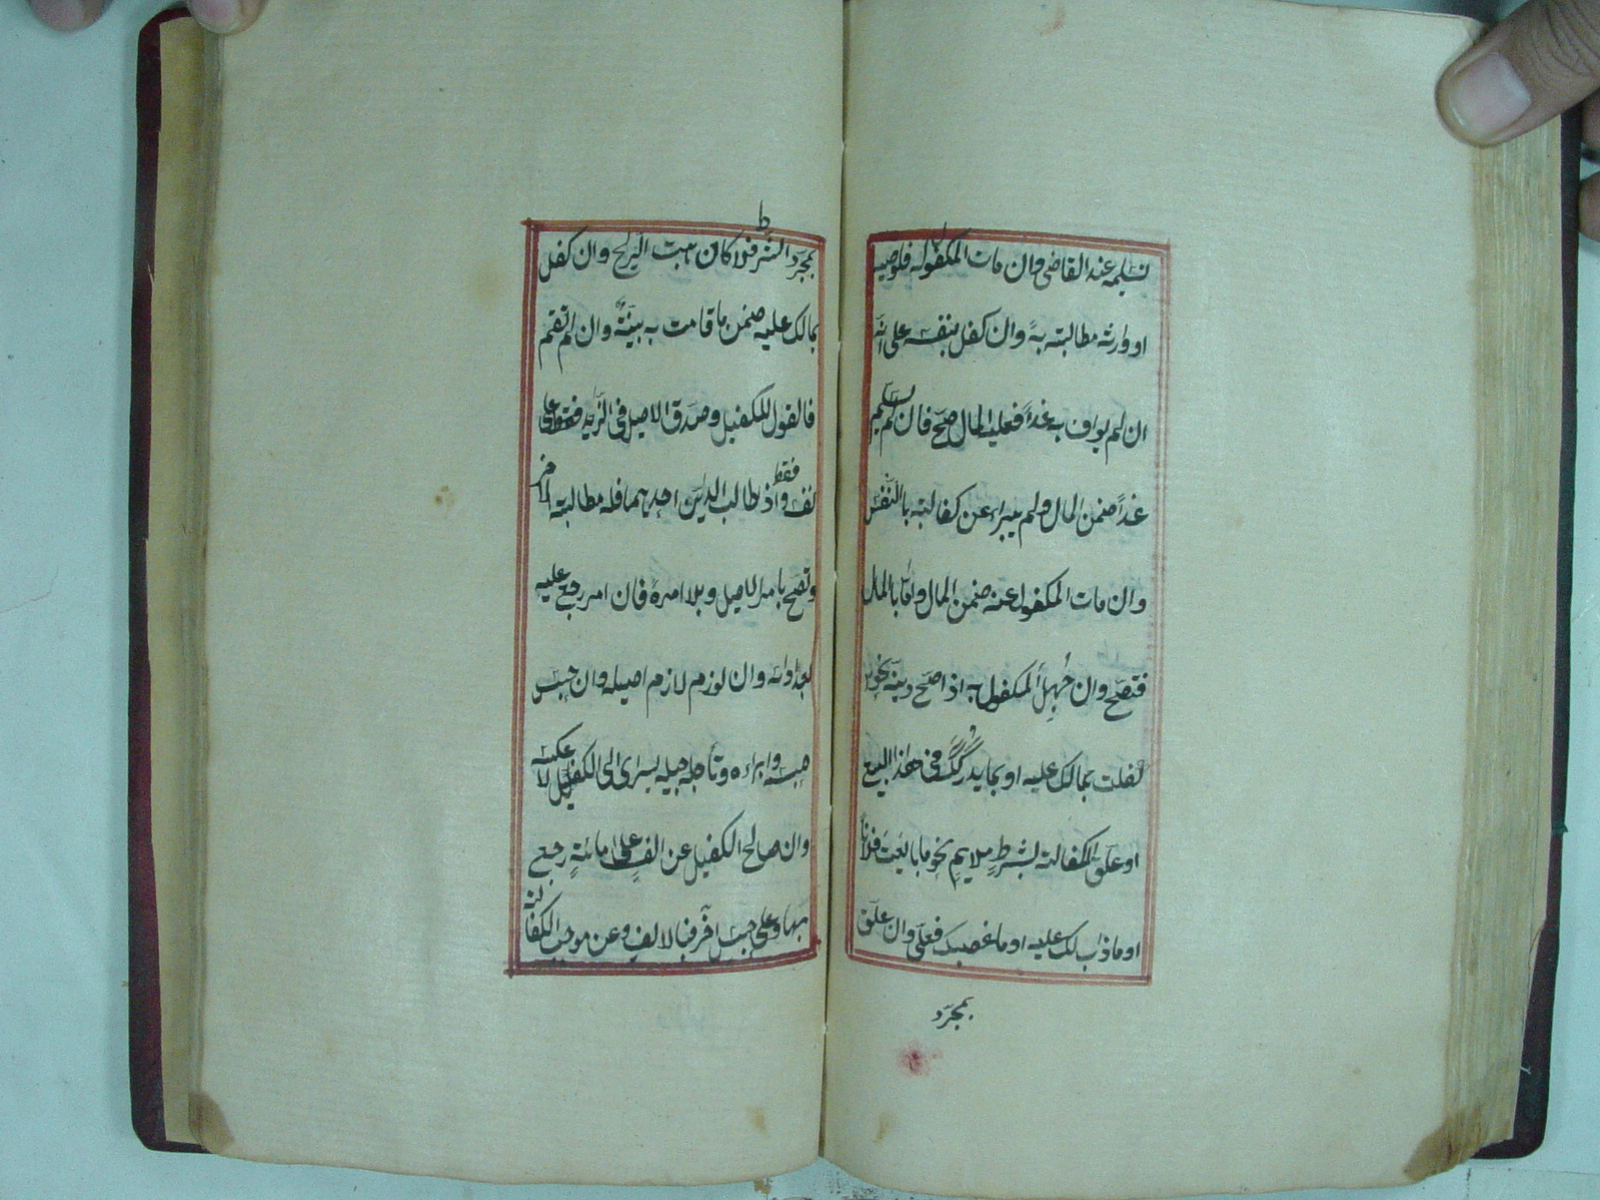 تسليمه عند القاضى وان مات المكفول له فلوصيه
او وارثه مطالبته به وان كفل بنفسه على انه
ان لم يواف به غداً فعليه المال صحّ فان لم يسلم
غداً ضمن المال ولم يبراء عن كفالته بالنفس
وان مات المكفول عنه ضمن المال واما بالمال
فتصحّ وان جُهِلَ المكفول به اذا صحّ دينه نحو
كفلت بمالك عليه او بما يدركك فى هذا البيع
او علّق الكفالة بشرطٍ ملايمٍ نحو ما بايعت فلاناً
او ما ذاب لك عليه او ما غصبك فعلىّ وان علّق
بمجرّد
بمجرّد الشرط فلا كان هبت الريح وان كفل
بمالك عليه ضمن ما قامت به بينةٌ وان لم تقم
فالقول للكفيل وصدق الاصيل فى الزيد فقط على
نفسه فقط واذ طالب الداين احديهما فله مطالبة الاخر
وتصحّ بامر الاصيل وبلا امره فان امر رجع عليه
بعد ادائه وان لوزم لازم اصيله وان حبس
حبسه وابراءه وتأجيله يسرى الى الكفيل لا عكسه
وان صالح الكفيل عن الفٍ على مائةٍ رجع
بها وعلى جنس اخر فبالالف وعن موجب الكفالة